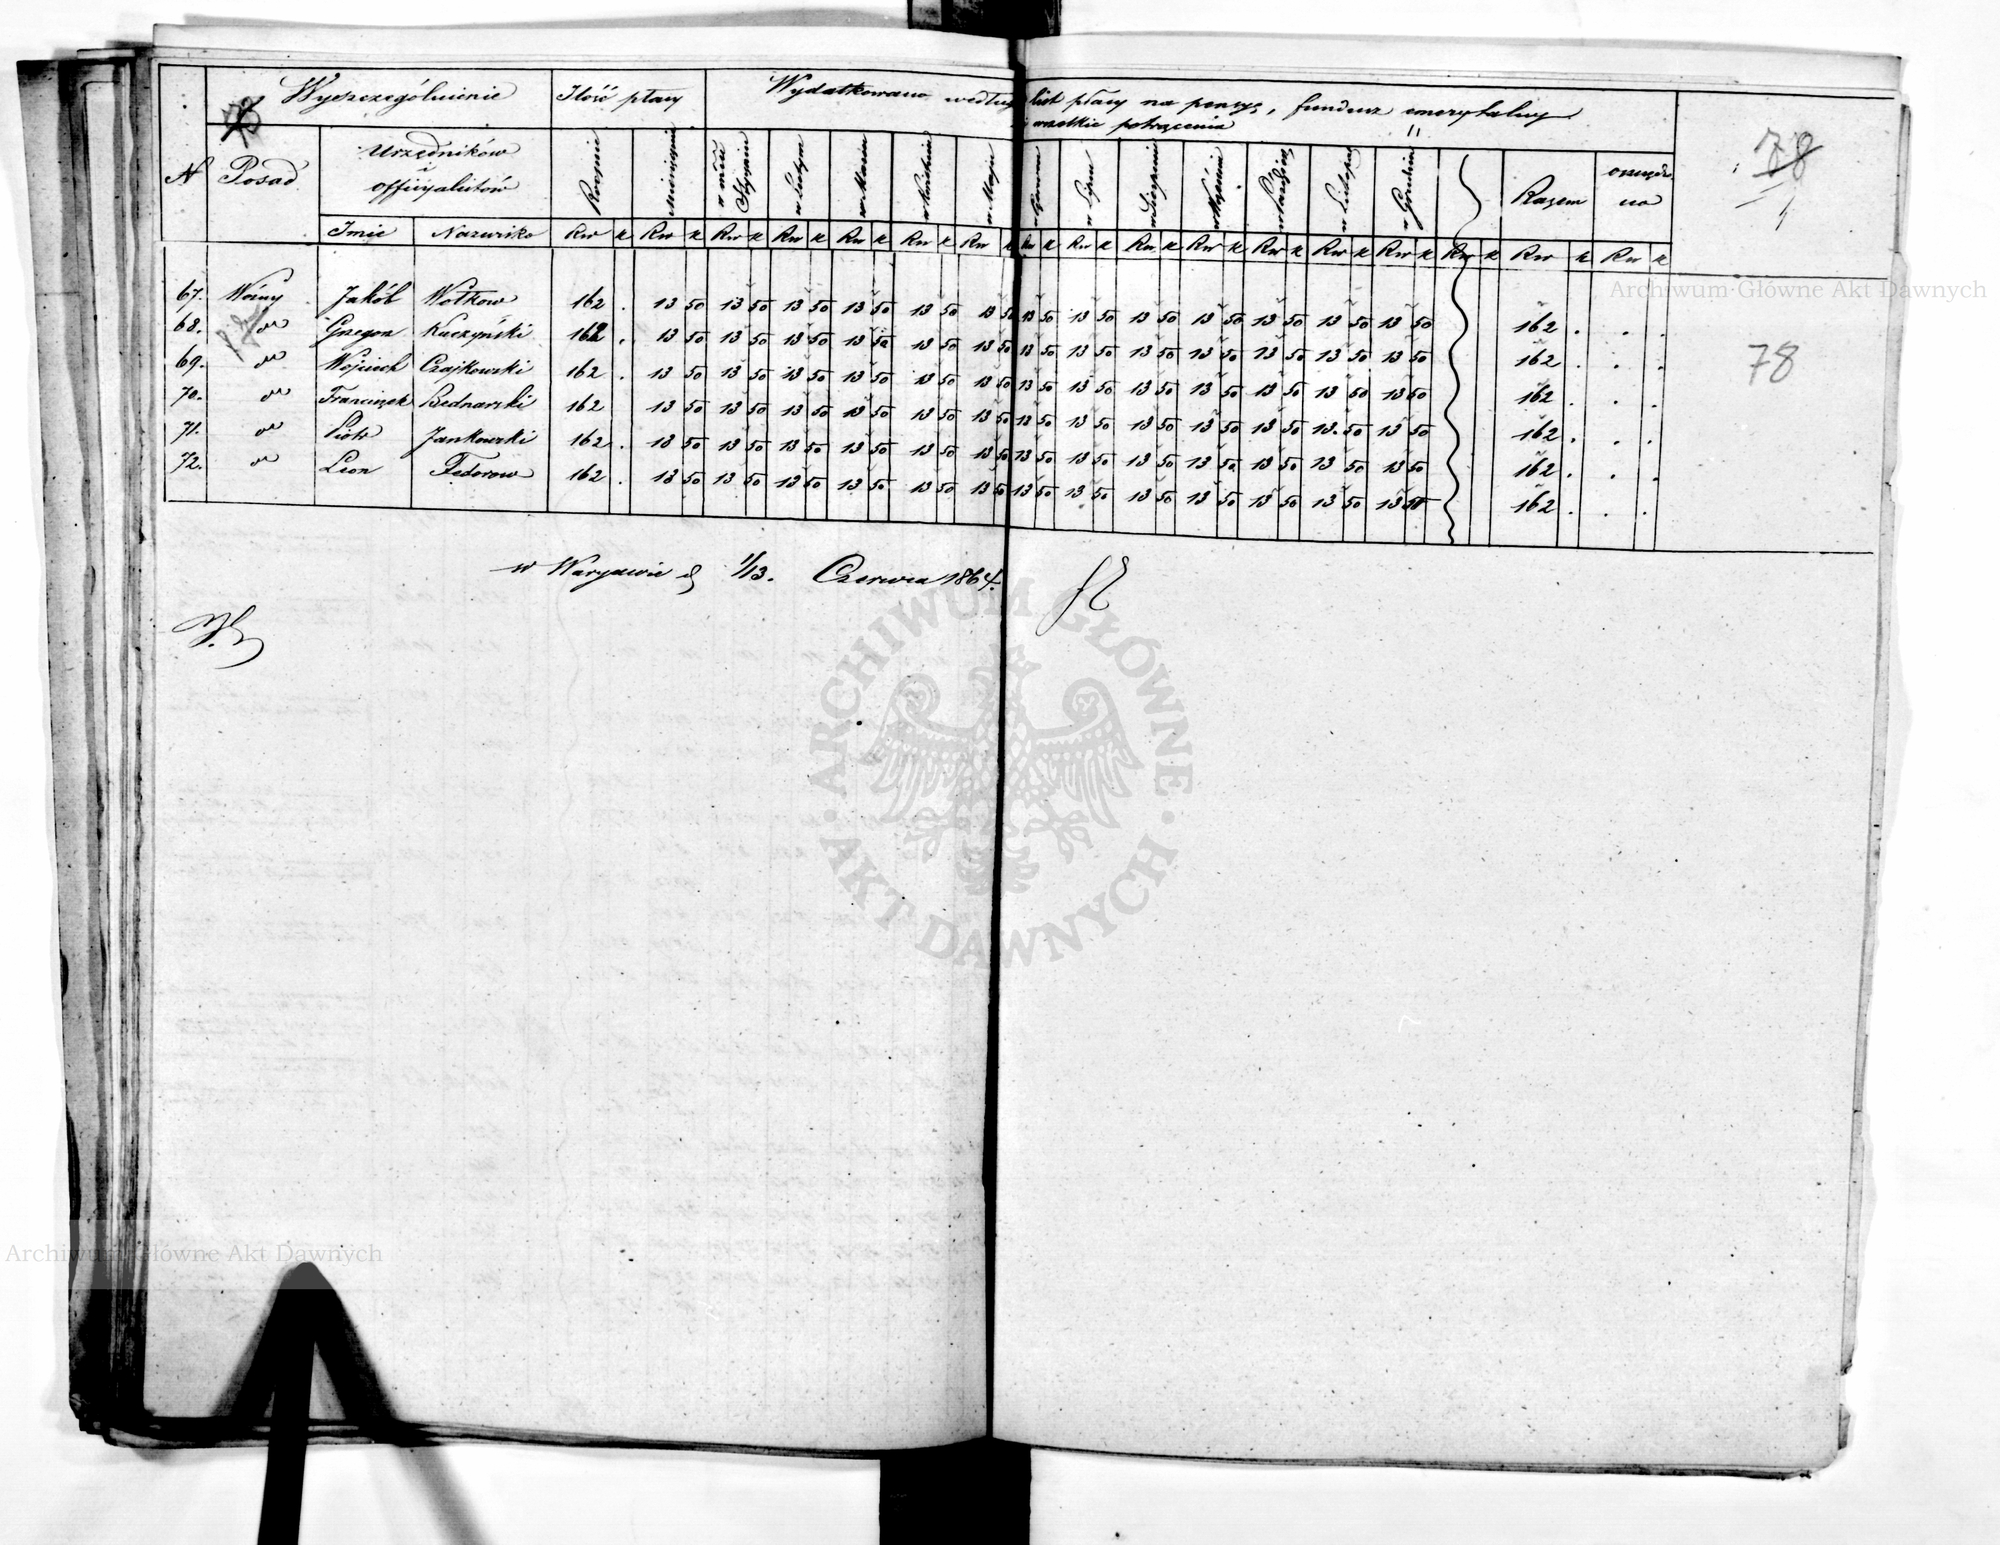 Wyszczególnienie Ilość płacy Wydatkowano według list płacy na pensye, fundusz emerytalny
i wszelkie potrącenia
78
N Posad Urzędników
i
officyalistów Rocznie Miesięcznie w mcu Styczniu w Lutym w Marcu w Kwietniu w Maju w Czerwcu w Lipcu w Sierpniu w Wrześniu w Październ w Listopad w Grudniu Razem oszczędzono
Imie Nazwisko Rsr k Rsr k Rsr k Rsr k Rsr k Rsr k Rsr k Rsr k Rsr k Rsr k Rsr k Rsr k Rsr k Rsr k Rsr k Rsr k Rsr k
67. Woźny Jakób Wołkow 162 . 13 50 13 50 13 50 13 50 13 50 13 50 13 50 13 50 13 50 13 50 13 50 13 50 13 50 162 . . .
68. do Grzegorz Kuczyński 162 . 13 50 13 50 13 50 13 50 13 50 13 50 13 50 13 50 13 50 13 50 13 50 13 50 13 50 162 . . .
69. do Wojciech Czajkowski 162 . 13 50 13 50 13 50 13 50 13 50 13 50 13 50 13 50 13 50 13 50 13 50 13 50 13 50 162 . . .
70. do Franciszek Bednarski 162 13 50 13 50 13 50 13 50 13 50 13 50 13 50 13 50 13 50 13 50 13 50 13 50 13 50 162 . . .
71. do Piotr Jankowski 162 . 13 50 13 50 13 50 13 50 13 50 13 50 13 50 13 50 13 50 13 50 13 50 13 50 13 50 162 . . .
72. do Leon Fedorow 162 . 13 50 13 50 13 50 13 50 13 50 13 50 13 50 13 50 13 50 13 50 13 50 13 50 13 50 162 . . .
w Warszawie d 1/13. Czerwca 1864.
78
78
Archiwum Główne Akt Dawnych
ARCHIWUM GŁÓWNE
AKT DAWNYCH
Archiwum Główne Akt Dawnych